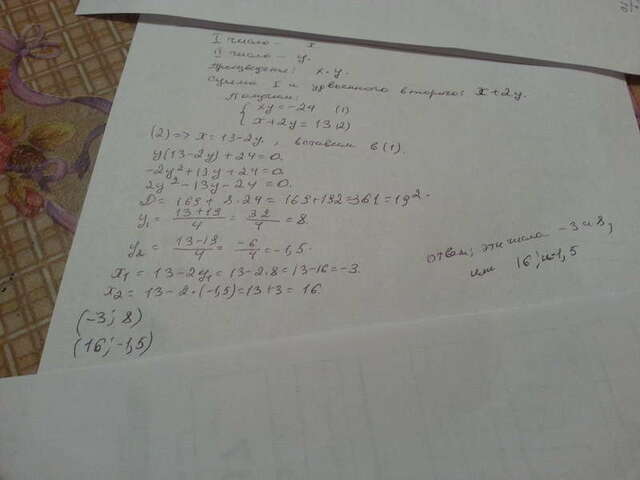 I число - x
II число - y.
Произведение: x·y.
Сумма I и удвоенного второго: x+2y.
Получим:
{ xy = -24 (1)
{ x+2y = 13 (2)
(2) => x = 13-2y, вставим в (1).
y(13-2y)+24=0.
-2y²+13y+24=0.
2y²-13y-24=0.
D= 169+8·24 = 169+192=361=19².
y₁ = (13+19)/4 = 32/4 = 8.
y₂ = (13-19)/4 = -6/4 = -1,5.
x₁ = 13-2y₁ = 13-2·8 = 13-16 = -3.
x₂ = 13-2·(-1,5)=13+3 = 16.
(-3; 8)
(16; -1,5)
ответ: эти числа -3 и 8,
или 16 и -1,5